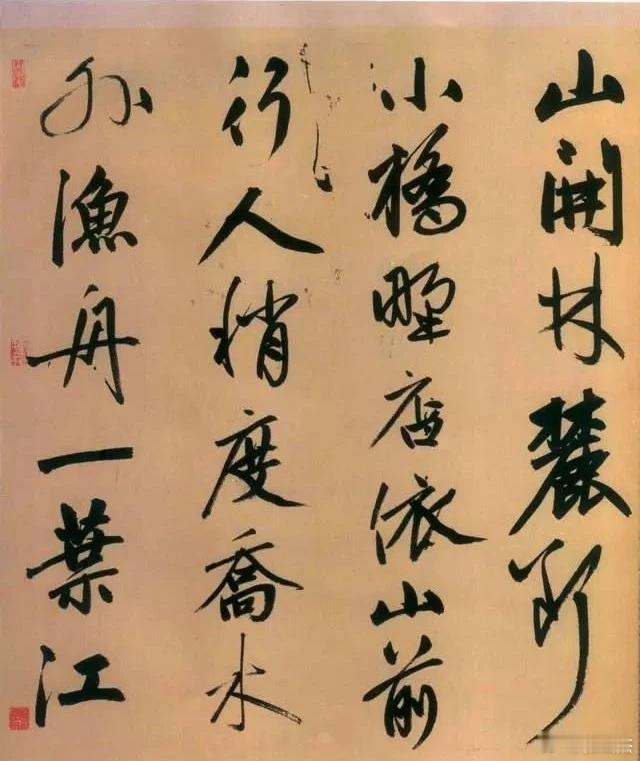 山開林麓断
小橋野店依山前
行人稍度喬木
外漁舟一葉江